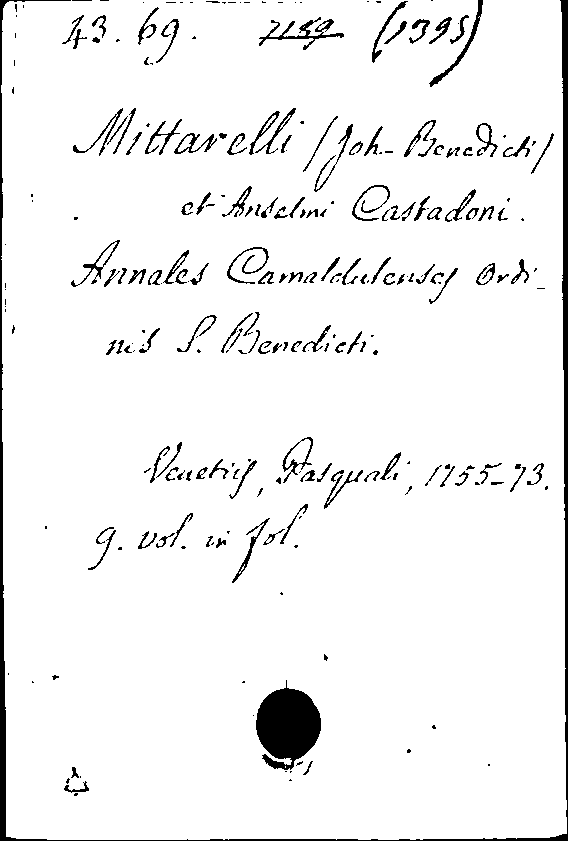 43. 69. 7189 (1395)
Mittarelli (Joh- Benedicti)
et Anselmi Castadoni.
Annales Camaldulenses Ordi-
nis S. Benedicti.
Venetiis, Pasquali, 1755-73.
9. vol. in fol.